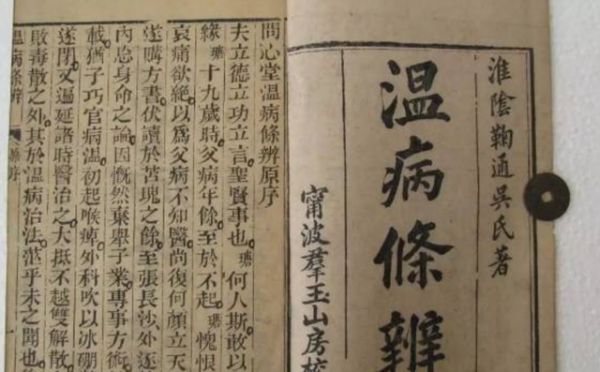 淮陰鞠通吳氏著
温病條辨
甯波羣玉山房校
問心堂温病條辨原序
夫立德立功立言聖賢事也瑭何人斯敢以
緣瑭十九歲時父病年餘至於不起瑭愧恨
哀痛欲絕以爲父病不知醫尚復何顏立天
遂購方書伏讀於苫塊之餘至張長沙外逐
內忘身命之論因慨然棄舉子業專事方術
載猶子巧官病温初起喉痺外科吹以冰硼
遂閉又遍延諸時醫治之大抵不越雙解散
敗毒散之外其於温病治法茫乎未之聞也
温病條辨 原序